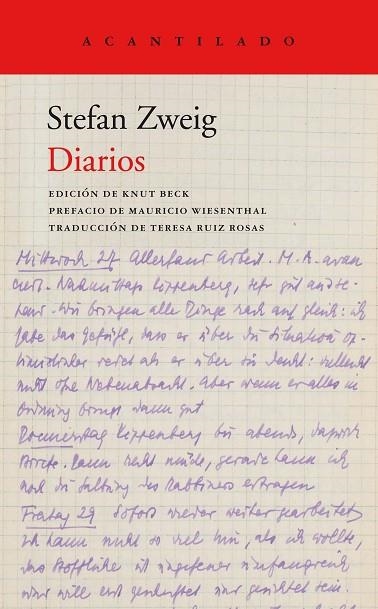 ACANTILADO
Stefan Zweig
Diarios
EDICIÓN DE KNUT BECK
PREFACIO DE MAURICIO WIESENTHAL
TRADUCCIÓN DE TERESA RUIZ ROSAS
Mittwoch 27 Allerhand Arbeit. M. A. avan
ciert. Nachmittags Kippenberg, sehr gut und
Wir bringen alle Dinge rasch auf gleich: ich
habe das Gefühl, dass er über die Situation op-
timistischer redet als er über sie denkt: vielleicht
nicht ohne Nebenabsicht. Aber wenn er alles in
Ordnung bringt dann gut
Donnerstag Kippenberg bis abends,
Arbeit. Kann nicht
noch die Haltung des Rabbiners ertragen
Freitag 29 Sofort wieder weitergearbeitet,
ich kann nicht so viel tun, als ich wollte,
das Stoffliche ist ungeheuer umfangreich
und will erst und gesichtet sein.